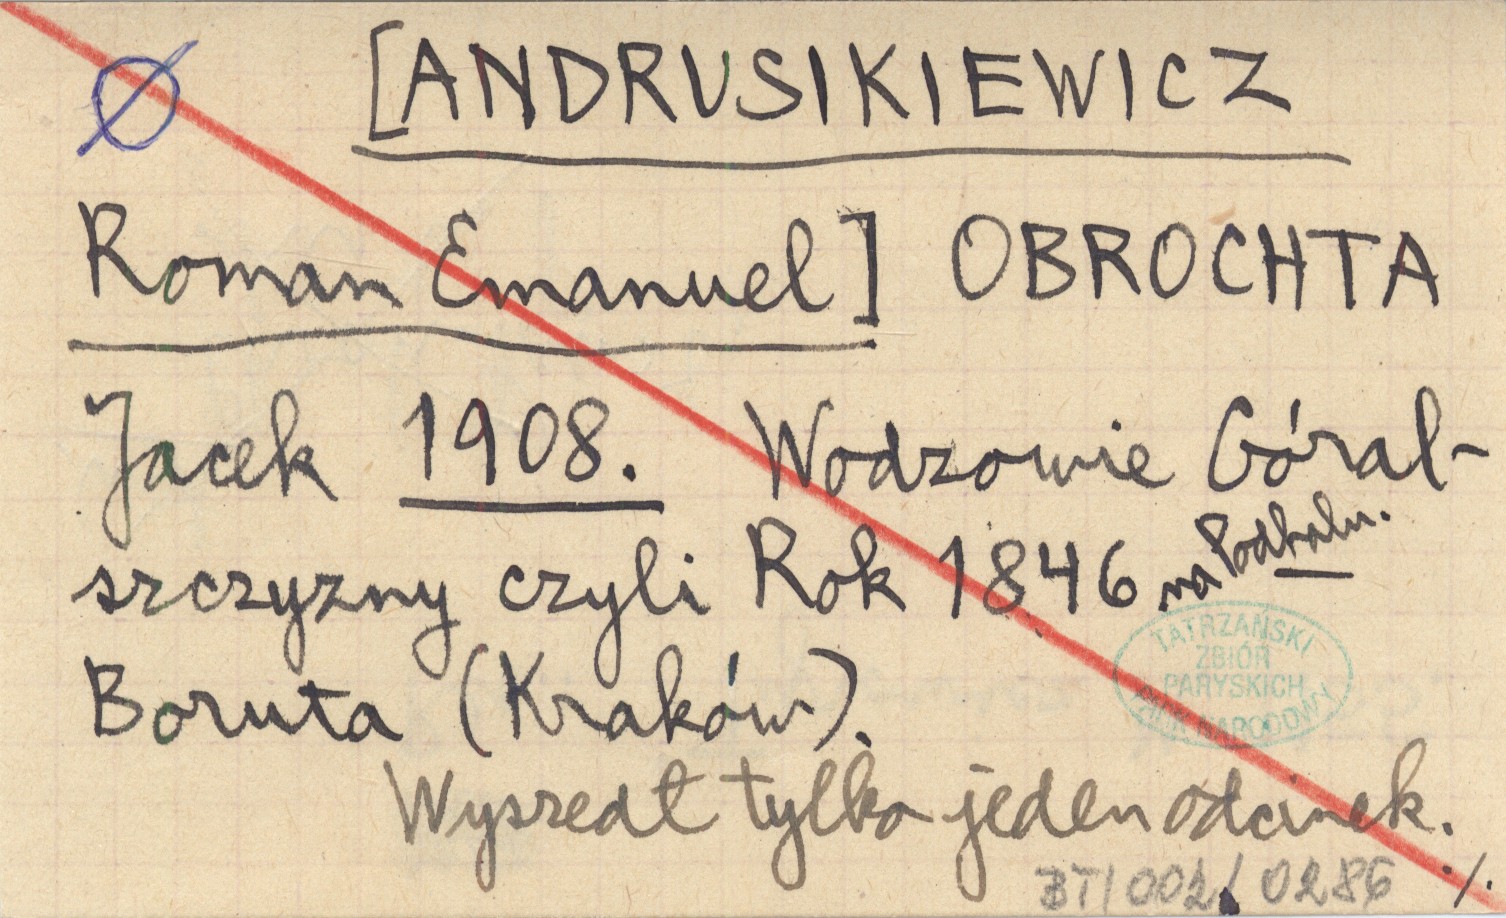 Ø [ANDRUSIKIEWICZ
Roman Emanuel] OBROCHTA
Jacek 1908. Wodzowie Góral-
szczyzny czyli Rok 1846 na Podhalu.
Boruta (Kraków).
TATRZAŃSKI
ZBIÓR
PARYSKICH
PARK NARODOWY
Wyszedł tylko jeden odcinek.
BT/002/0286 ./.